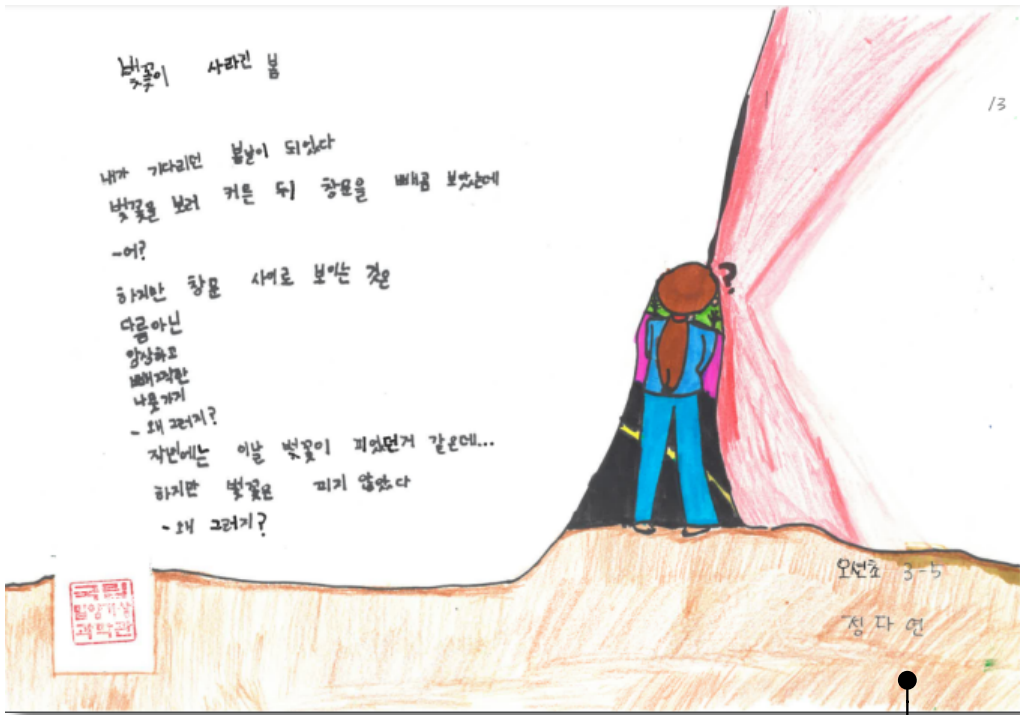 벚꽃이 사라진 봄
13
내가 기다리던 봄날이 되었다
벚꽃을 보러 커튼 뒤 창문을 빼꼼 보았는데
-어?
하지만 창문 사이로 보이는 것은
다름아닌
앙상하고
삐쩍한
나뭇가지
- 왜 그러지?
작번에는 이날 벚꽃이 피었던거 같은데...
하지만 벚꽃은 피지 않았다
- 왜 그러지?
?
오선초 3-5
정다연
국립
밀양기상
과학관